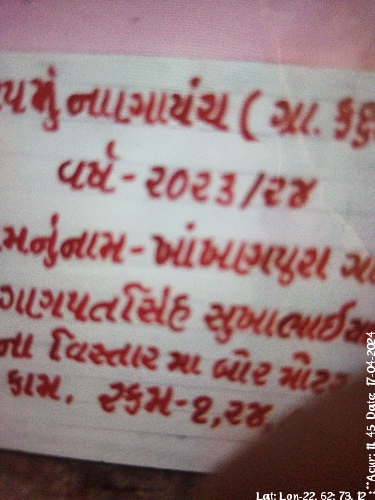 ૧૫ મું નાણાપંચ ( ગ્રા.
વર્ષ - ૨૦૨૩/૨૪
મનુંનામ - ખાંખણપુરા ગા
ગણપતસિંહ સુખાભાઈ
ના વિસ્તાર મા બોર મોટર
કામ. રકમ - ૧,૨૪,
Lat: Lon-22, 62; 73, 12
Acur: 11.45 Date: 17-04-2024